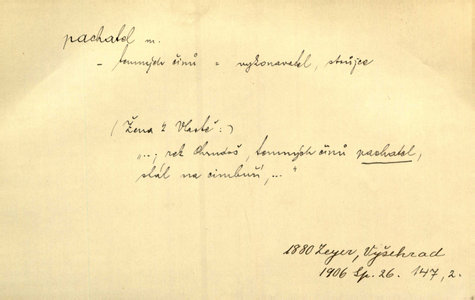 pachatel m.
– temných činů = vykonavatel, strůjce
(Žena z Vlastě:)
"..., rek Chrudoš, temných činů pachatel,
stál na cimbuří, ..."
1880 Zeyer, Vyšehrad
1906 Sp. 26. 147, 2.